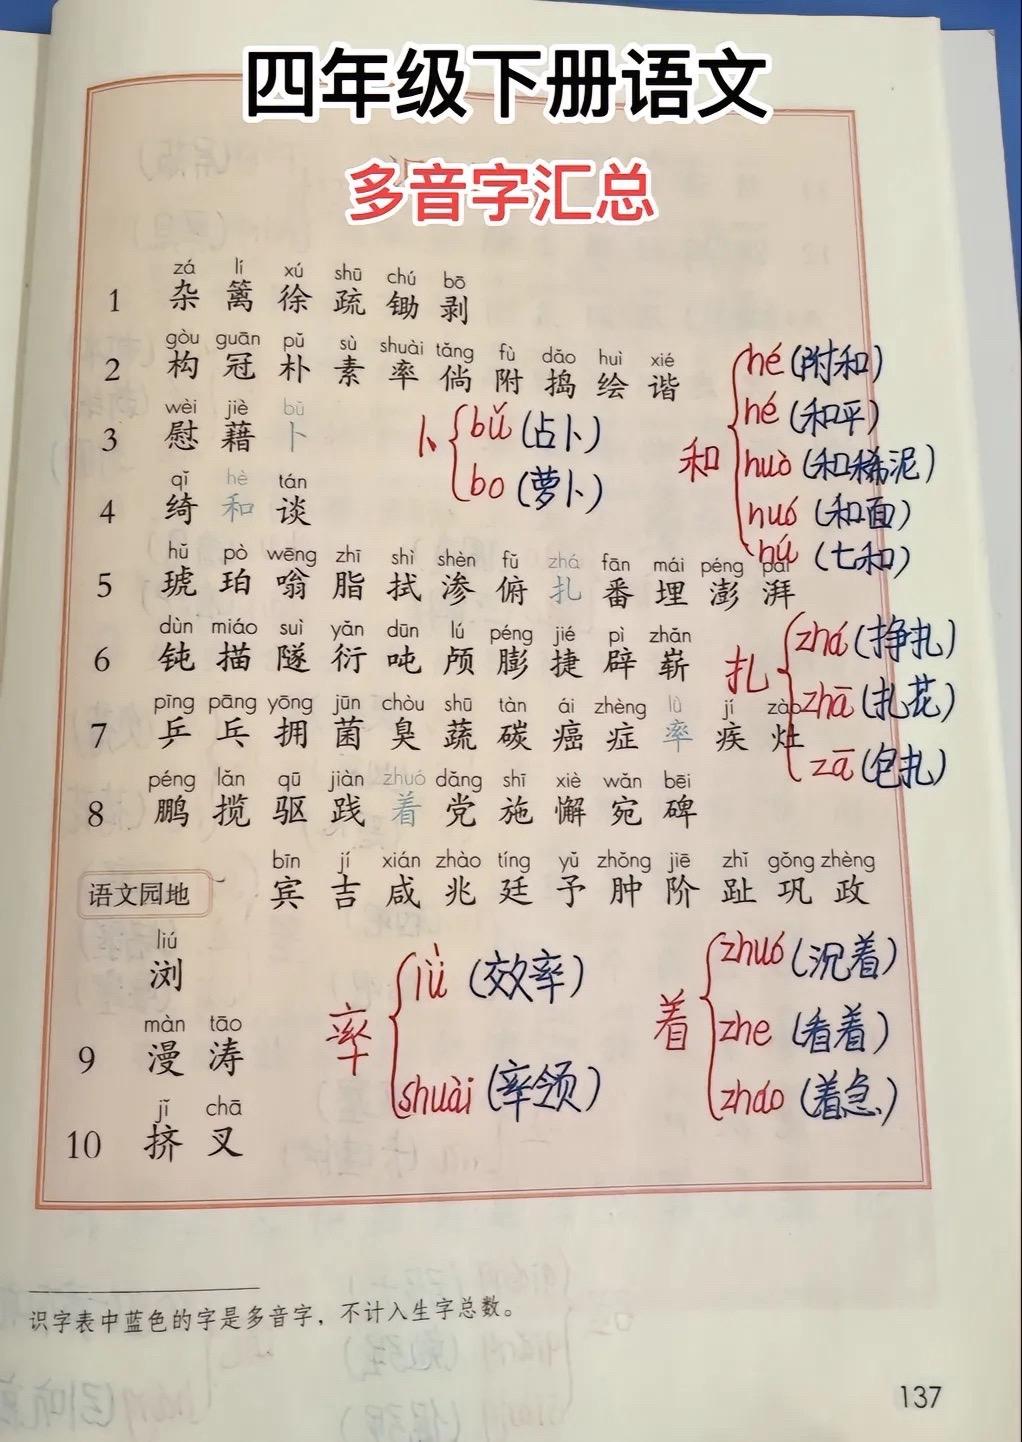 四年级下册语文
多音字汇总
zá lí xú shū chú bō
1 杂 篱 徐 疏 锄 剥
gòu guān pǔ sù shuài tǎng fù dǎo huì xié
2 构 冠 朴 素 率 倘 附 捣 绘 谐
wèi jiè bǔ
3 慰 藉 卜
qǐ hè tán
4 绮 和 谈
hǔ pò wēng zhī shì shèn fǔ zhá fān mái péng pài
5 琥 珀 嗡 脂 拭 渗 俯 扎 番 埋 澎 湃
dùn miáo suì yǎn dūn lú péng jié pì zhǎn
6 钝 描 隧 衍 吨 颅 膨 捷 辟 崭
pīng pāng yōng jūn chòu shū tàn ái zhèng lǜ jí zào
7 乒 乓 拥 菌 臭 蔬 碳 癌 症 率 疾 灶
péng lǎn qū jiàn zhuó dǎng shī xiè wǎn bēi
8 鹏 揽 驱 践 着 党 施 懈 宛 碑
bīn jí xián zhào tíng yǔ zhǒng jiē zhǐ gǒng zhèng
语文园地 宾 吉 咸 兆 廷 予 肿 阶 趾 巩 政
liú
浏
màn tāo
9 漫 涛
jǐ chā
10 挤 叉
卜
bǔ (占卜)
bo (萝卜)
和
hé (附和)
hé (和平)
huò (和稀泥)
huó (和面)
hú (七和)
扎
zhá (挣扎)
zhā (扎花)
zā (包扎)
率
lǜ (效率)
shuài (率领)
着
zhuó (沉着)
zhe (看着)
zháo (着急)
识字表中蓝色的字是多音字，不计入生字总数。
137